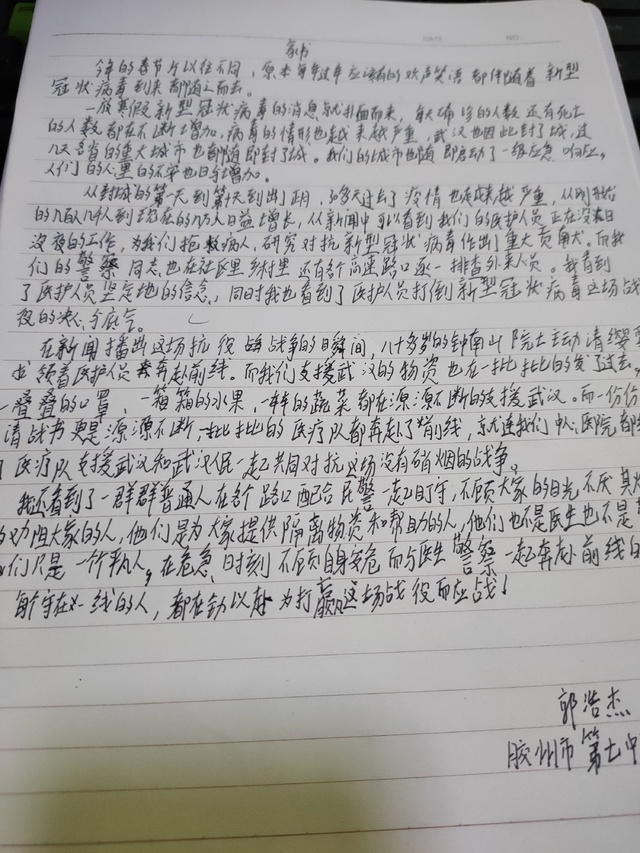 家书
今年的春节与以往不同，原本每年过年应该有的欢声笑语都伴随着新型
冠状病毒到来都随之而去。
一放寒假新型冠状病毒的消息就扑面而来，每天确诊的人数还有死亡
的人数都在不断增加，病毒的情形也越来越严重，武汉也因此封了城，过
几天各省的重大城市也都随即封了城。我们的城市也随即启动了一级应急响应。
人们的心里的不安也日与增加。
从封城的第一天到第十天到出正月，30多天过去了疫情也越来越严重，从刚开始
的几百几十人到现在的几万人日益增长，从新闻中可以看到我们的医护人员正在没日
没夜的工作，为我们抢救病人，研究对抗新型冠状病毒作出了重大贡献。而我
们的警察同志也在社区里乡村里还有各个高速路口逐一排查外来人员。我看到
了医护人员坚定地的信念，同时我也看到了医护人员打倒新型冠状病毒这场战
役的决心与底气。
在新闻播出这场抗役战争的日瞬间，八十多岁的钟南山院士主动请缨要
求领着医护人员奔赴前线。而我们支援武汉的物资也在一批批的发了过去，
一叠叠的口罩，一箱箱的水果，一车车的蔬菜都在源源不断的支援武汉。而一份份
请战书更是源源不断，一批批的医疗队都奔赴了前线，京尤连我们中心医院都
医疗队支援武汉和武汉人民一起共同对抗这场没有硝烟的战争。
我还看到了一群群普通人在各个路口配合民警一起盯守，不顾大家的目光不厌其烦
的劝阻大家的人，他们是为大家提供隔离物资和帮助的人，他们也不是医生也不是
们只是一个平凡人，在危急时刻不顾自身安危而与医生警察一起奔赴前线的
每个守在一线的人，都在全力以赴为打赢这场战役而应战！
郭浩杰
胶州市第七中